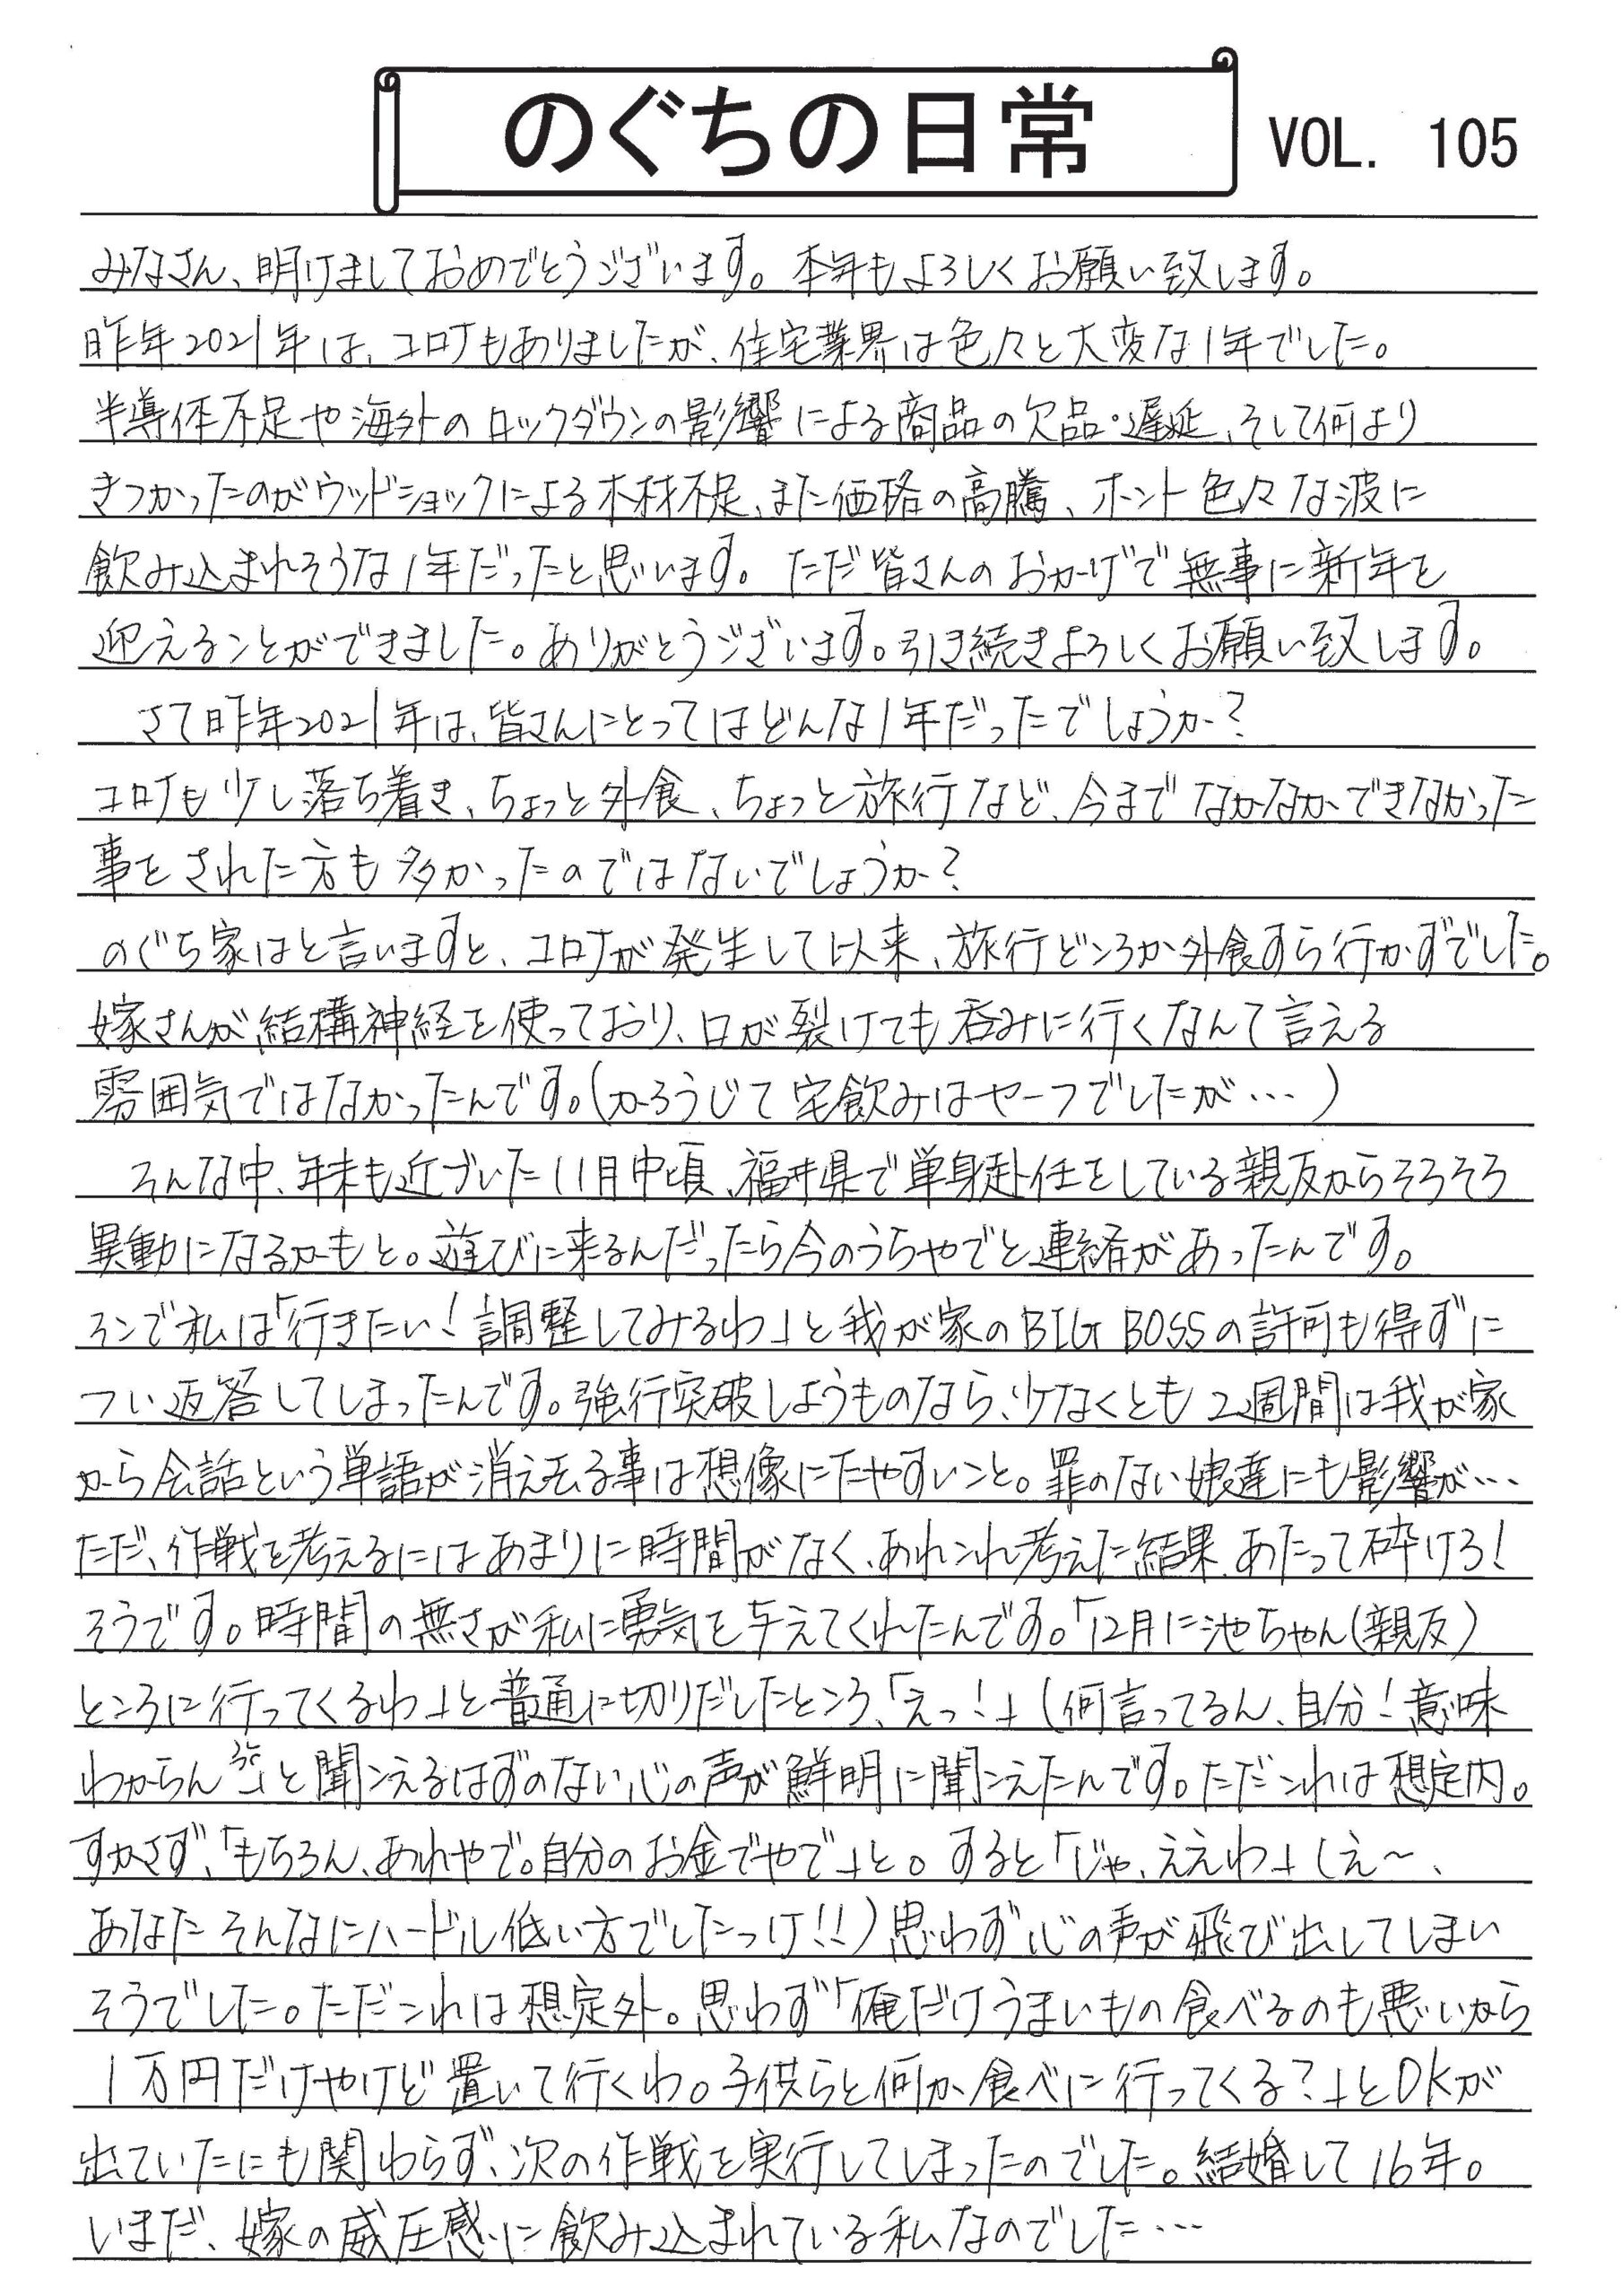 のぐちの日常 VOL. 105
みなさん、明けましておめでとうございます。本年もよろしくお願い致します。
昨年2021年は、コロナもありましたが、住宅業界は色々と大変な1年でした。
半導体不足や海外のロックダウンの影響による商品の欠品・遅延、そして何より
きつかったのがウッドショックによる木材不足、また価格の高騰、ホント色々な波に
飲み込まれそうな1年だったと思います。ただ皆さんのおかげで無事に新年を
迎えることができました。ありがとうございます。引き続きよろしくお願い致します。
さて昨年2021年は、皆さんにとってはどんな1年だったでしょうか?
コロナも少し落ち着き、ちょっと外食、ちょっと旅行など、今までなかなかできなかった
事をされた方も多かったのではないでしょうか?
のぐち家はと言いますと、コロナが発生して以来、旅行どころか外食すら行かずでした。
嫁さんが結構神経を使っており、口が裂けても呑みに行くなんて言える
雰囲気ではなかったんです。(かろうじて宅飲みはセーフでしたが…)
そんな中、年末も近づいた11月中頃、福井県で単身赴任をしている親友からそろそろ
異動になるかもと。遊びに来るんだったら今のうちやでと連絡があったんです。
そこで私は「行きたい!調整してみるわ」と我が家のBIG BOSSの許可も得ずに
つい返答してしまったんです。強行突破しようものなら、少なくとも2週間は我が家
から会話という単語が消え去る事は想像にたやすいこと。罪のない娘達にも影響が…
ただ、作戦を考えるにはあまりに時間がなく、あれこれ考えた結果、あたって砕けろ!
そうです。時間の無さが私に勇気を与えてくれたんです。「12月に池ちゃん(親友)
ところに行ってくるわ」と普通に切りだしたところ、「えっ!」(何言ってるん、自分!意味
わからん」と聞こえるはずのない心の声が鮮明に聞こえたんです。ただこれは想定内。
すかさず、「もちろん、あれやで。自分のお金でやで」と。すると「じゃ、ええわ」(え〜、
あなたそんなにハードル低い方でしたっけ!!)思わず心の声が飛び出してしまい
そうでした。ただこれは想定外。思わず「俺だけうまいもの食べるのも悪いから
1万円だけやけど置いて行くわ。子供らと何か食べに行ってくる?」とOKが
出ていたにも関わらず、次の作戦を実行してしまったのでした。結婚して16年。
いまだ、嫁の威圧感に飲み込まれている私なのでした…